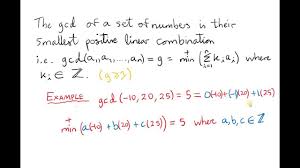 The gcd of a set of numbers is their
smallest positive linear combination
i.e. gcd(a₁, a₂, ..., aₙ) = g = min⁺(∑ᵢ₌₁ⁿ kᵢaᵢ) where
kᵢ ∈ ℤ. (g≥1)
EXAMPLE gcd(-10, 20, 25) = 5 = 0(-10)+(-1)(20)+1(25)
min⁺(a(-10) + b(20) + c(25)) = 5 where a,b,c ∈ ℤ